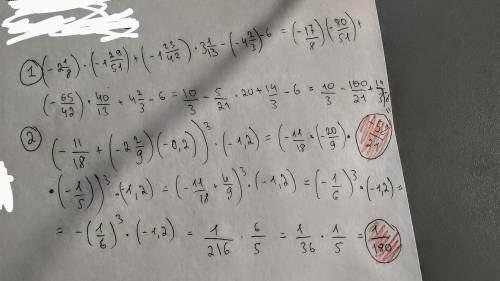 ① (-2 1/8) · (-1 29/51) + (-1 23/42) · 3 1/13 - (-4 2/3) - 6 = (-17/8)(-80/51) +
(-65/42) · 40/13 + 4 2/3 - 6 = 10/3 - 5/21 · 20 + 14/3 - 6 = 10/3 - 100/21 + 14/3
② (-11/18 + (-2 2/9)(-0,2))³ · (-1,2) = (-11/18 + (-20/9) ·
· (-1/5))³ · (-1,2) = (-11/18 + 4/9)³ · (-1,2) = (-1/6)³ · (-1,2) =
= -(1/6)³ · (-1,2) = 1/216 · 6/5 = 1/36 · 1/5 = 1/180